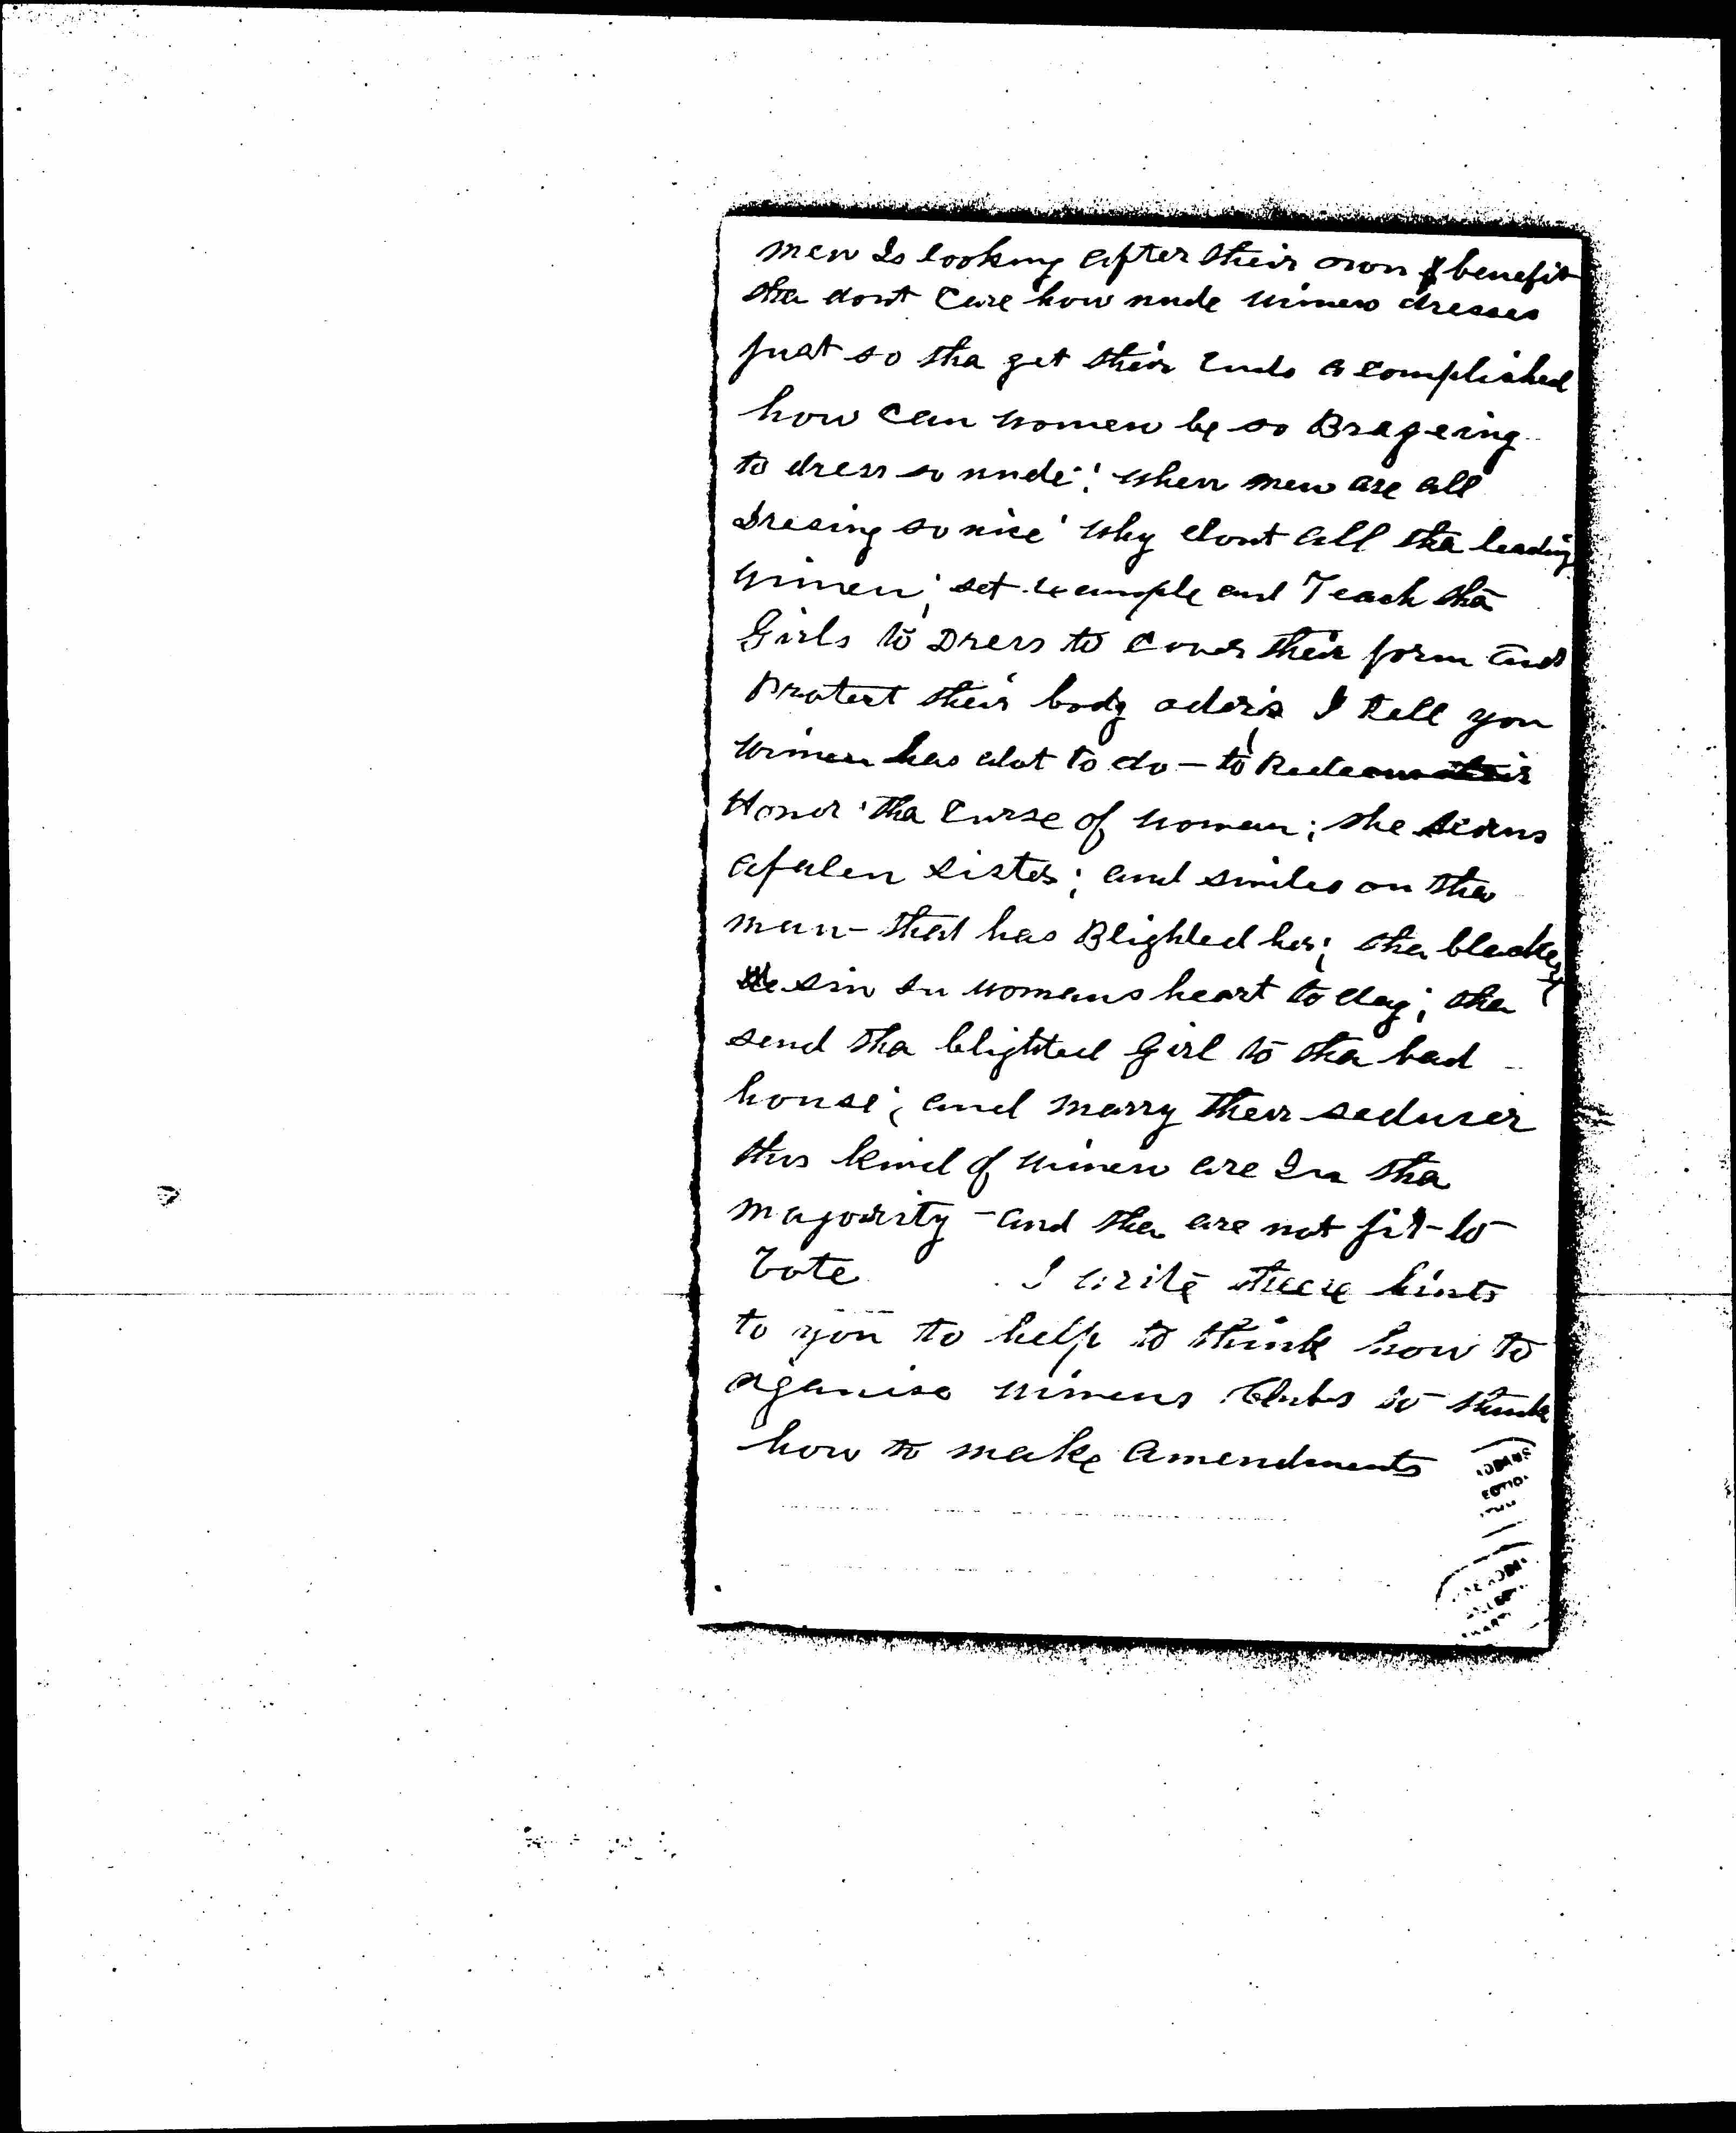 men Is looking after their own benefit
tha dont Care how nude wimen dresses
just so tha get their Ends acomplished
how Can women be so Brageing
to dress so nude! when men are all
Dresing so nice' why dont all tha leading
wimen; set example and Teach tha
Girls to Dress to Cover their form and
Protect their body I tell you
wimen has alot to do - to Redeem their
Honor tha Curse of woman; she scorns
afalen sister; and smiles on tha
man - that has Blighted her; tha blackest
sin In womans heart to day; tha
send tha blighted Girl to tha bad
house; and marry their seduser
this kind of wimen are In tha
majority - and tha are not fit - to
Vote I write these hints
to you to help to think how to
organise wimens Clubs to think
how to make amendments